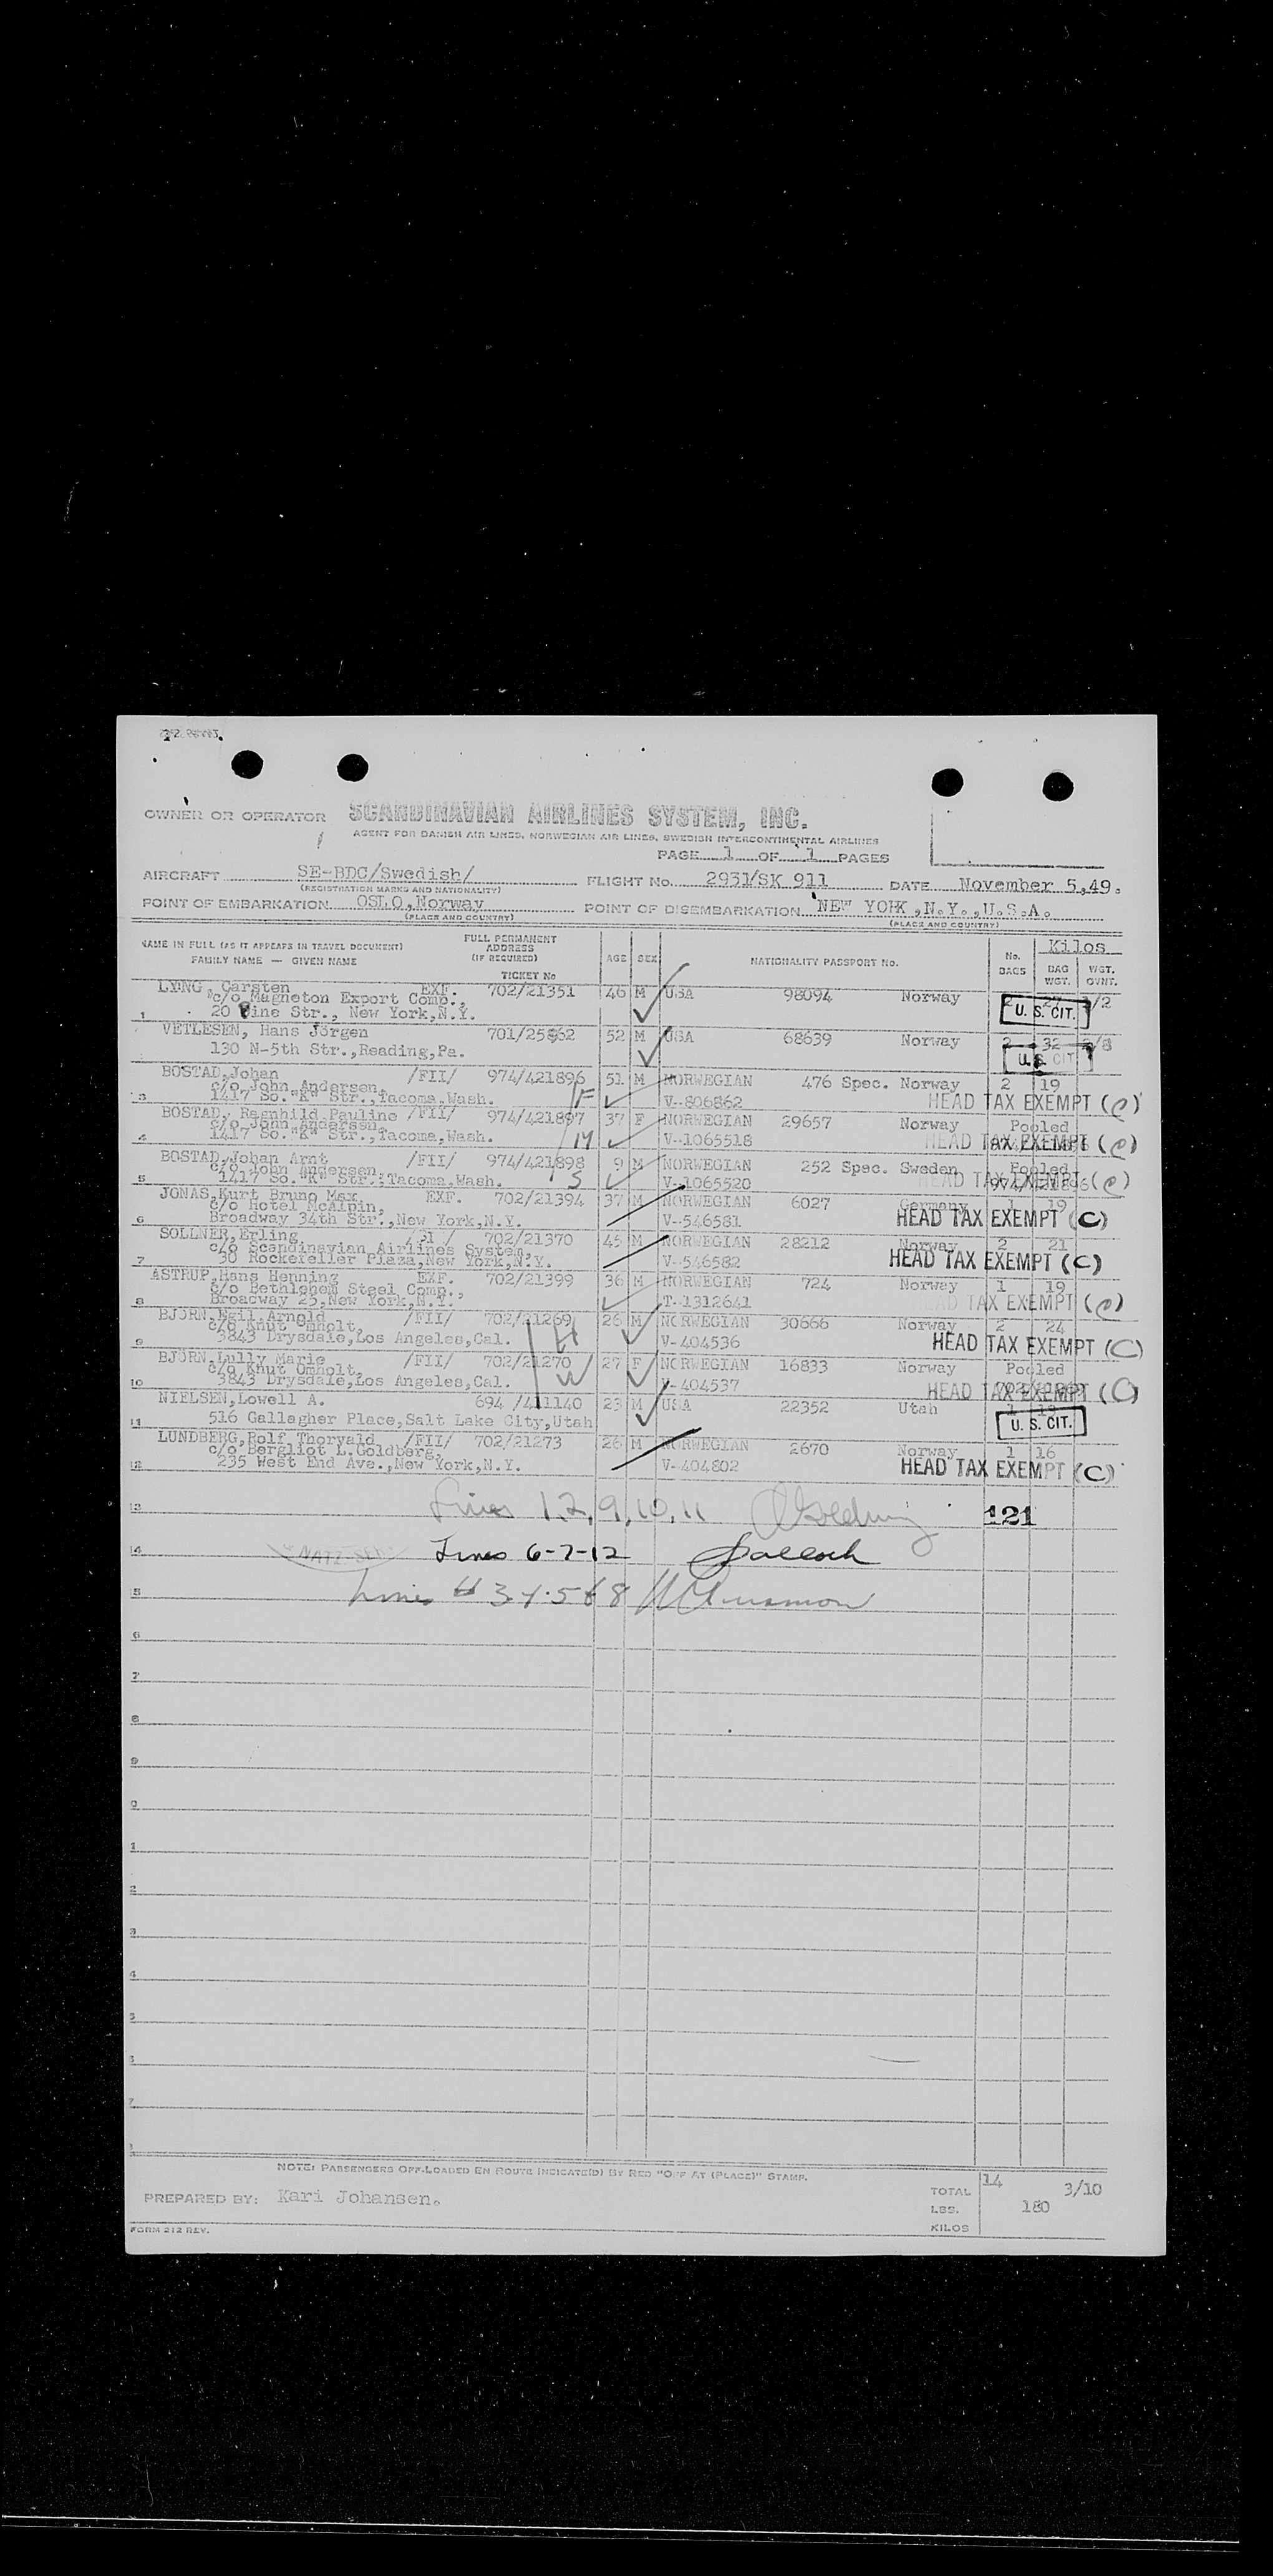 OWNER OR OPERATOR SCANDINAVIAN AIRLINES SYSTEM, INC.
AGENT FOR DANISH AIR LINES, NORWEGIAN AIR LINES, SWEDISH INTERCONTINENTAL AIRLINES
PAGE 1 OF 1 PAGES
AIRCRAFT SE-BDC/Swedish/ FLIGHT No. 2931/SK 911 DATE November 5,49.
(REGISTRATION MARKS AND NATIONALITY)
POINT OF EMBARKATION OSLO,Norway POINT OF DISEMBARKATION NEW YORK,N.Y.,U.S.A.
(PLACE AND COUNTRY) (PLACE AND COUNTRY)
NAME IN FULL (AS IT APPEARS IN TRAVEL DOCUMENT) FULL PERMANENT ADDRESS (IF REQUIRED) AGE SEX NATIONALITY PASSPORT No. No. BAGS Kilos
FAMILY NAME — GIVEN NAME TICKET No BAG WGT. WGT. OVNT.
LYNG, Carsten EXF. 702/21351 46 M USA 98094 Norway 2 /2
c/o Magneton Export Comp., U. S. CIT.
1 20 Pine Str., New York,N.Y.
VETLESEN, Hans Jörgen 701/25862 52 M USA 68639 Norway 2 32 /8
130 N-5th Str.,Reading,Pa. U.S. CIT.
BOSTAD,Johan /FII/ 974/421896 51 M NORWEGIAN 476 Spec. Norway 2 19
c/o John Andersen,
3 1417 So."K" Str.,Tacoma,Wash. F V-806862 HEAD TAX EXEMPT (C)
BOSTAD, Ragnhild Pauline /FII/ 974/421897 37 F NORWEGIAN 29657 Norway Pooled
c/o John Andersen,
4 1417 So."K" Str.,Tacoma,Wash. M V-1065518 HEAD TAX EXEMPT (C)
BOSTAD,Johan Arnt /FII/ 974/421898 9 M NORWEGIAN 252 Spec. Sweden Pooled
c/o John Andersen, 974/421896
5 1417 So."K" Str.,Tacoma,Wash. S V-1065520 HEAD TAX EXEMPT (C)
JONAS,Kurt Bruno Max. EXF. 702/21394 37 M NORWEGIAN 6027 Germany 1 19
c/o Hotel McAlpin,
6 Broadway 34th Str.,New York,N.Y. V-546581 HEAD TAX EXEMPT (C)
SOLLNER,Erling 702/21370 45 M NORWEGIAN 28212 Norway 2 21
c/o Scandinavian Airlines System,
7 30 Rockefeller Plaza,New York,N.Y. V-546582 HEAD TAX EXEMPT (C)
ASTRUP,Hans Henning EXF. 702/21399 36 M NORWEGIAN 724 Norway 1 19
c/o Bethlehem Steel Comp.,
8 Broadway 25,New York,N.Y. T-1312641 HEAD TAX EXEMPT (C)
BJÖRN,Egil Arnold /FII/ 702/21269 26 M NORWEGIAN 30666 Norway 2 24
c/o Knut Omholt, H
9 3843 Drysdale,Los Angeles,Cal. V-404536 HEAD TAX EXEMPT (C)
BJÖRN,Lully Marie /FII/ 702/21270 27 F NORWEGIAN 16833 Norway Pooled
c/o Knut Omholt, W
10 3843 Drysdale,Los Angeles,Cal. V-404537 HEAD TAX EXEMPT (C)
NIELSEN,Lowell A. 694 /411140 23 M USA 22352 Utah 1
11 516 Gallagher Place,Salt Lake City,Utah U. S. CIT.
LUNDBERG,Rolf Thorvald /FII/ 702/21273 26 M NORWEGIAN 2670 Norway 1 16
c/o Bergliot L.Goldberg,
12 235 West End Ave.,New York,N.Y. V-404802 HEAD TAX EXEMPT (C)
13 Lines 1,2,9,10,11 121
14 Lines 6-7-12
Lines # 3 4 5 & 8
NOTE: PASSENGERS OFF-LOADED EN ROUTE INDICATE(D) BY RED "OFF AT (PLACE)" STAMP.
PREPARED BY: Kari Johansen. TOTAL 14 3/10
LBS. 180
FORM 212 REV. KILOS